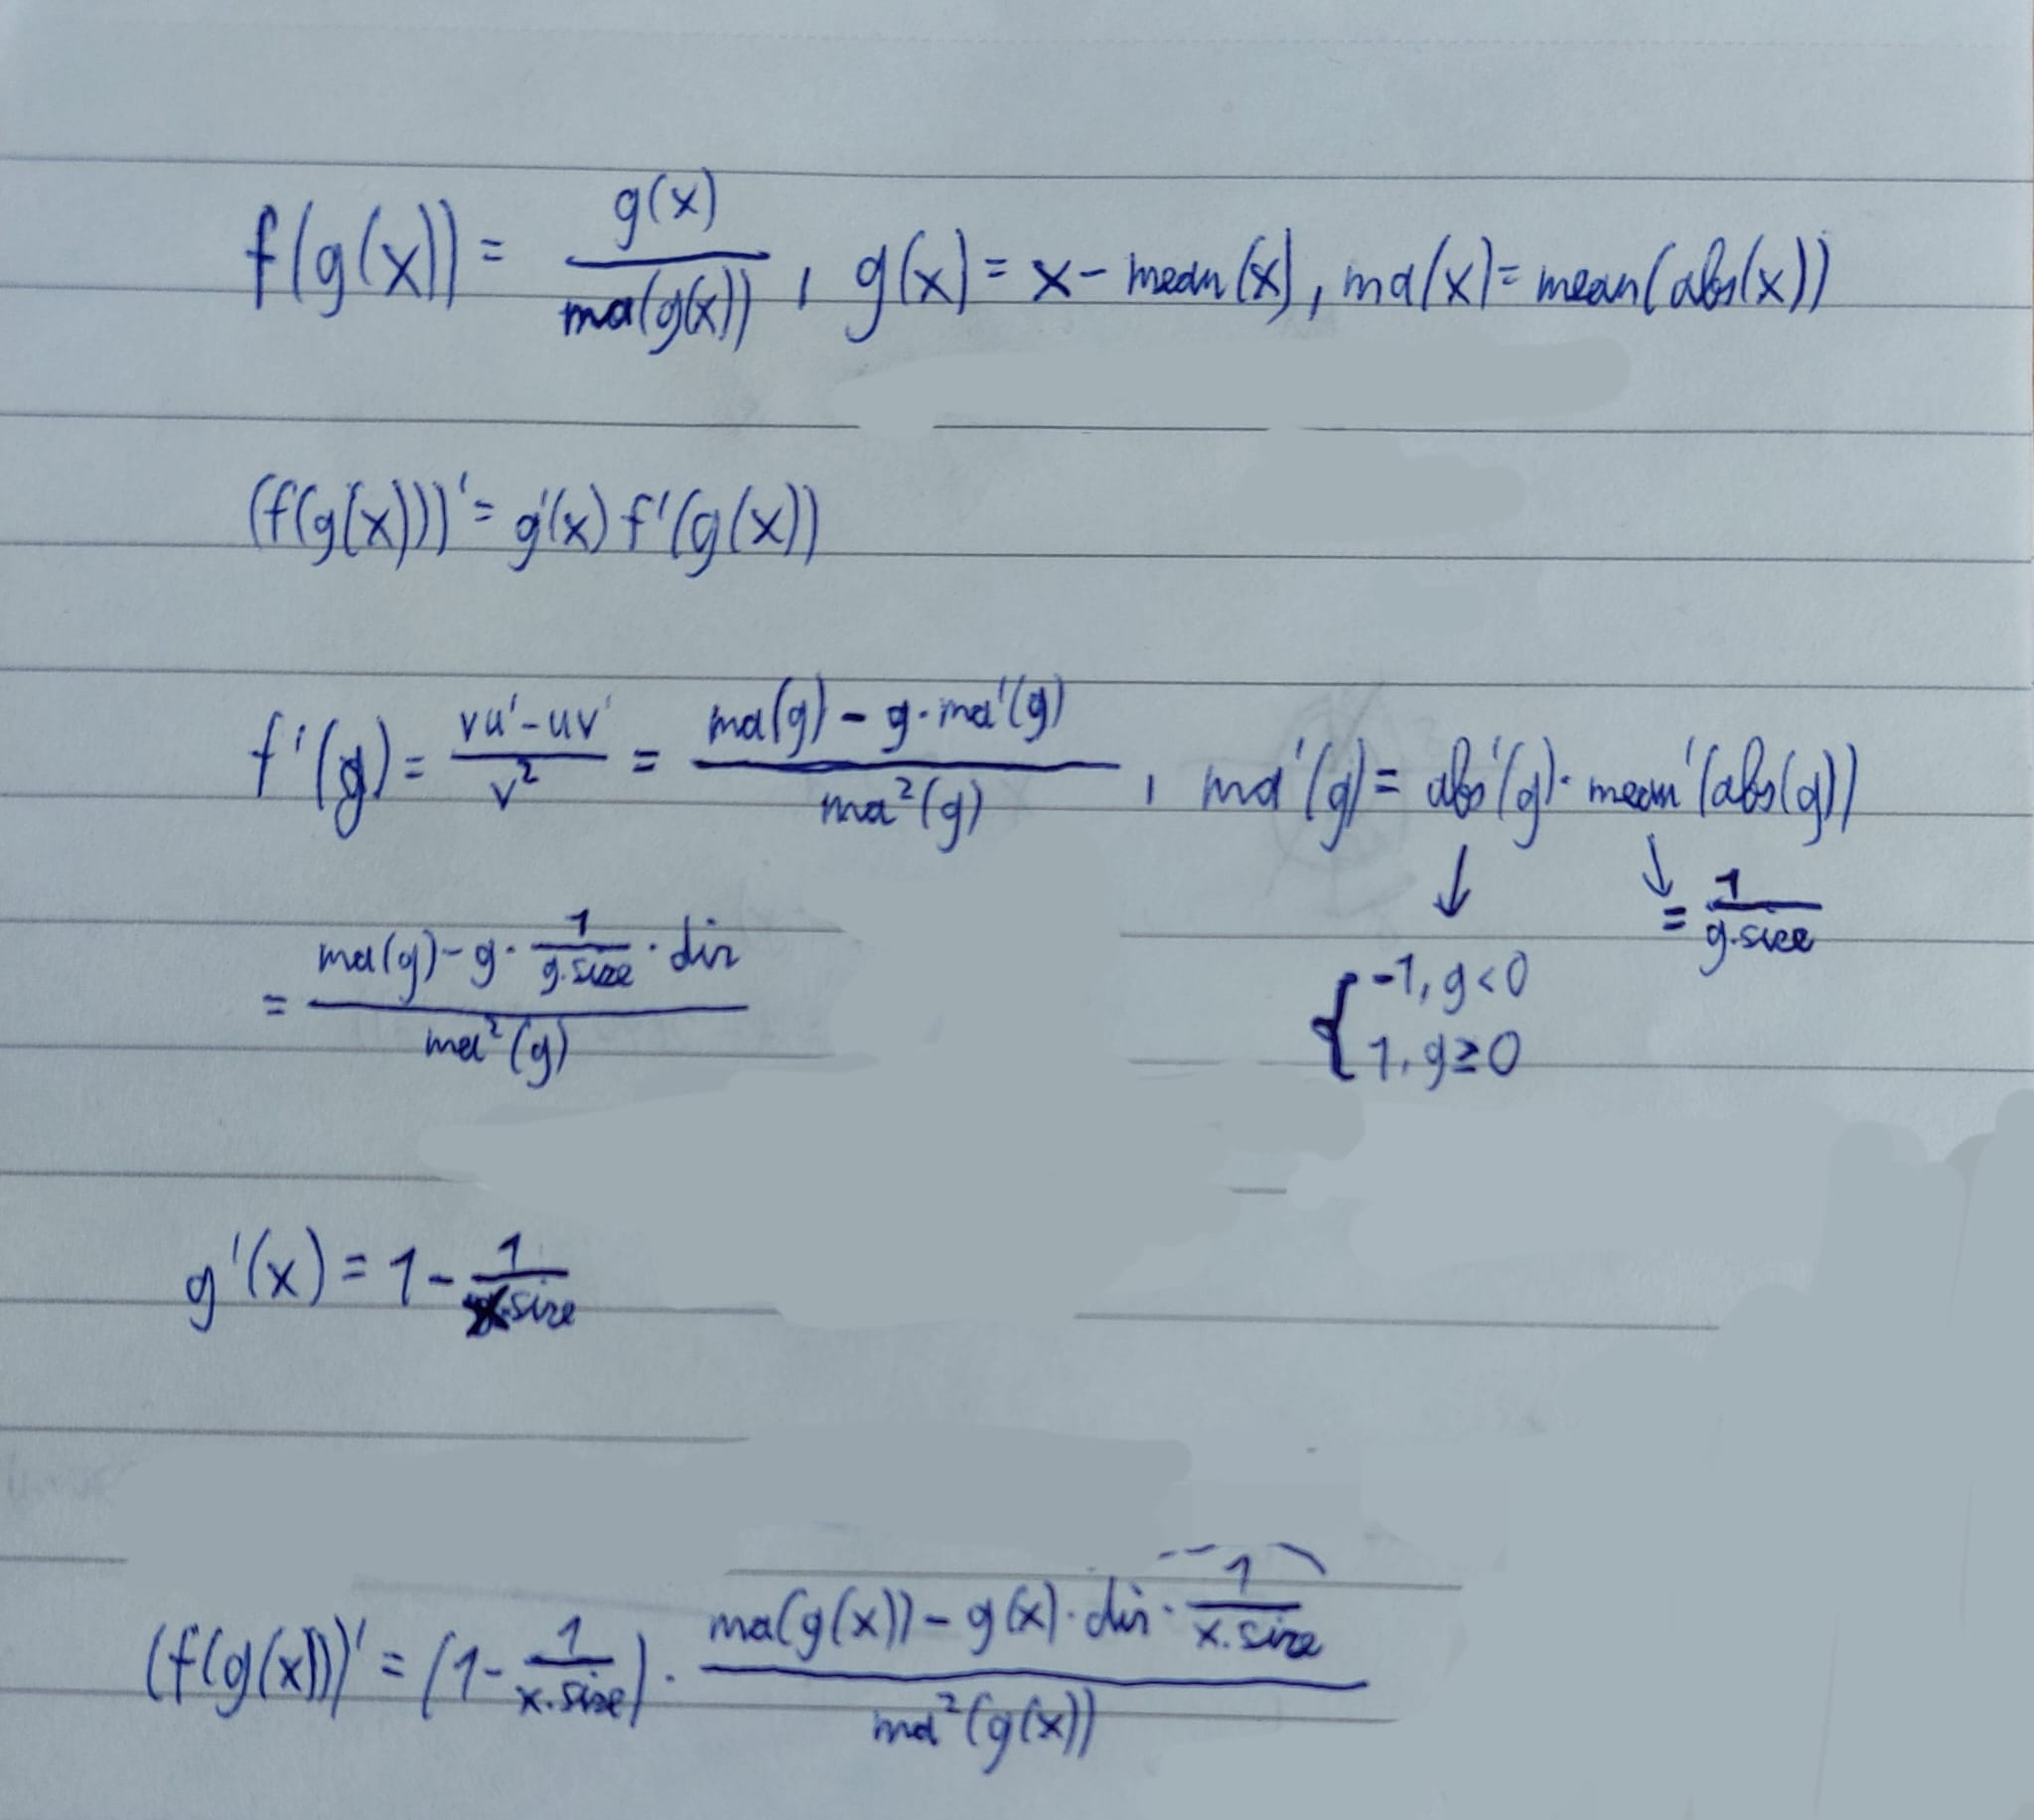 f(g(x)) = g(x) / ma(g(x)) , g(x) = x - mean(x), ma(x) = mean(abs(x))
(f(g(x)))' = g'(x) f'(g(x))
f'(g) = (vu' - uv') / v² = (ma(g) - g · ma'(g)) / ma²(g) , ma'(g) = abs'(g) · mean'(abs(g))
↓ ↘ = 1 / g.size
{ -1, g < 0
1, g ≥ 0
= (ma(g) - g · 1/g.size · dir) / ma²(g)
g'(x) = 1 - 1/x.size
(f(g(x)))' = (1 - 1/x.size) · (ma(g(x)) - g(x) · dir · 1/x.size) / ma²(g(x))